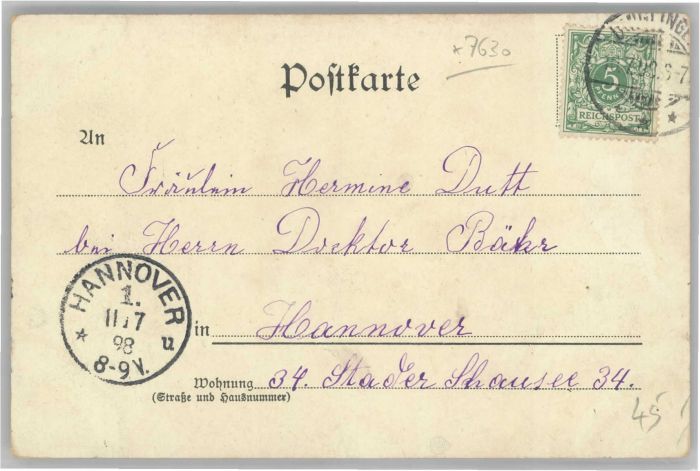 *7630
Postkarte
5
REICHSPOST
An
Fräulein Hermine Dutt
bei Herrn Doktor Bähr
HANNOVER
1.
11 7
98
8-9V.
* u
in Hannover
Wohnung 34. Stader Shausee 34.
(Straße und Hausnummer)
45